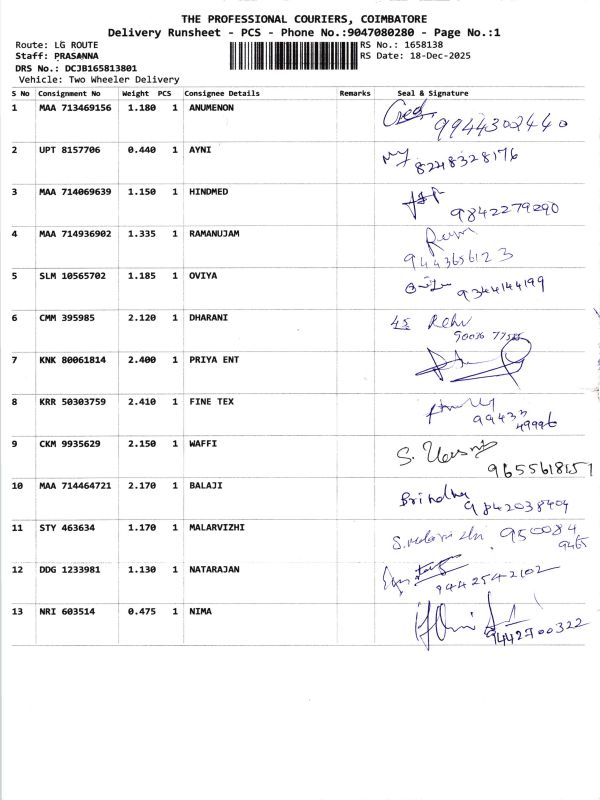 THE PROFESSIONAL COURIERS, COIMBATORE
Delivery Runsheet - PCS - Phone No.:9047080280 - Page No.:1
Route: LG ROUTE RS No.: 1658138
Staff: PRASANNA RS Date: 18-Dec-2025
DRS No.: DCJB165813801
Vehicle: Two Wheeler Delivery
S No Consignment No Weight PCS Consignee Details Remarks Seal & Signature
1 MAA 713469156 1.180 1 ANUMENON
9944302440
2 UPT 8157706 0.440 1 AYNI
8248328176
3 MAA 714069639 1.150 1 HINDMED
9842279290
4 MAA 714936902 1.335 1 RAMANUJAM Ram
9443656123
5 SLM 10565702 1.185 1 OVIYA
9344144199
6 CMM 395985 2.120 1 DHARANI 45
7 KNK 80061814 2.400 1 PRIYA ENT
8 KRR 50303759 2.410 1 FINE TEX
99433
49996
9 CKM 9935629 2.150 1 WAFFI S.
9655618151
10 MAA 714464721 2.170 1 BALAJI Brindha
9842038404
11 STY 463634 1.170 1 MALARVIZHI S.malarvizhi 950084
9465
12 DDG 1233981 1.130 1 NATARAJAN
9442542102
13 NRI 603514 0.475 1 NIMA
9442700322